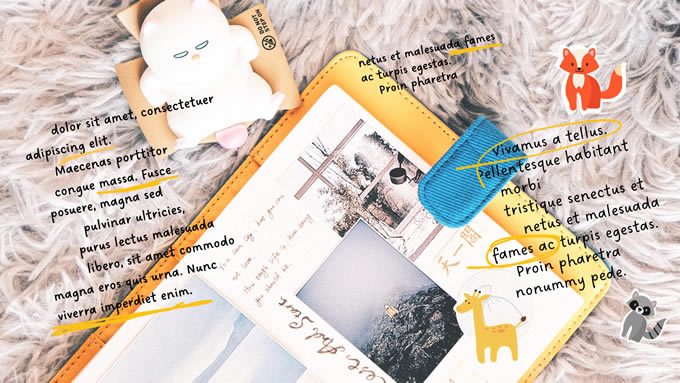 DO NOT
STEP ON
netus et malesuada fames
ac turpis egestas.
Proin pharetra
dolor sit amet, consectetuer
adipiscing elit.
Maecenas porttitor
congue massa. Fusce
posuere, magna sed
pulvinar ultricies,
purus lectus malesuada
libero, sit amet commodo
magna eros quis urna. Nunc
viverra imperdiet enim.
Vivamus a tellus.
Pellentesque habitant
morbi
tristique senectus et
netus et malesuada
fames ac turpis egestas.
Proin pharetra
nonummy pede.